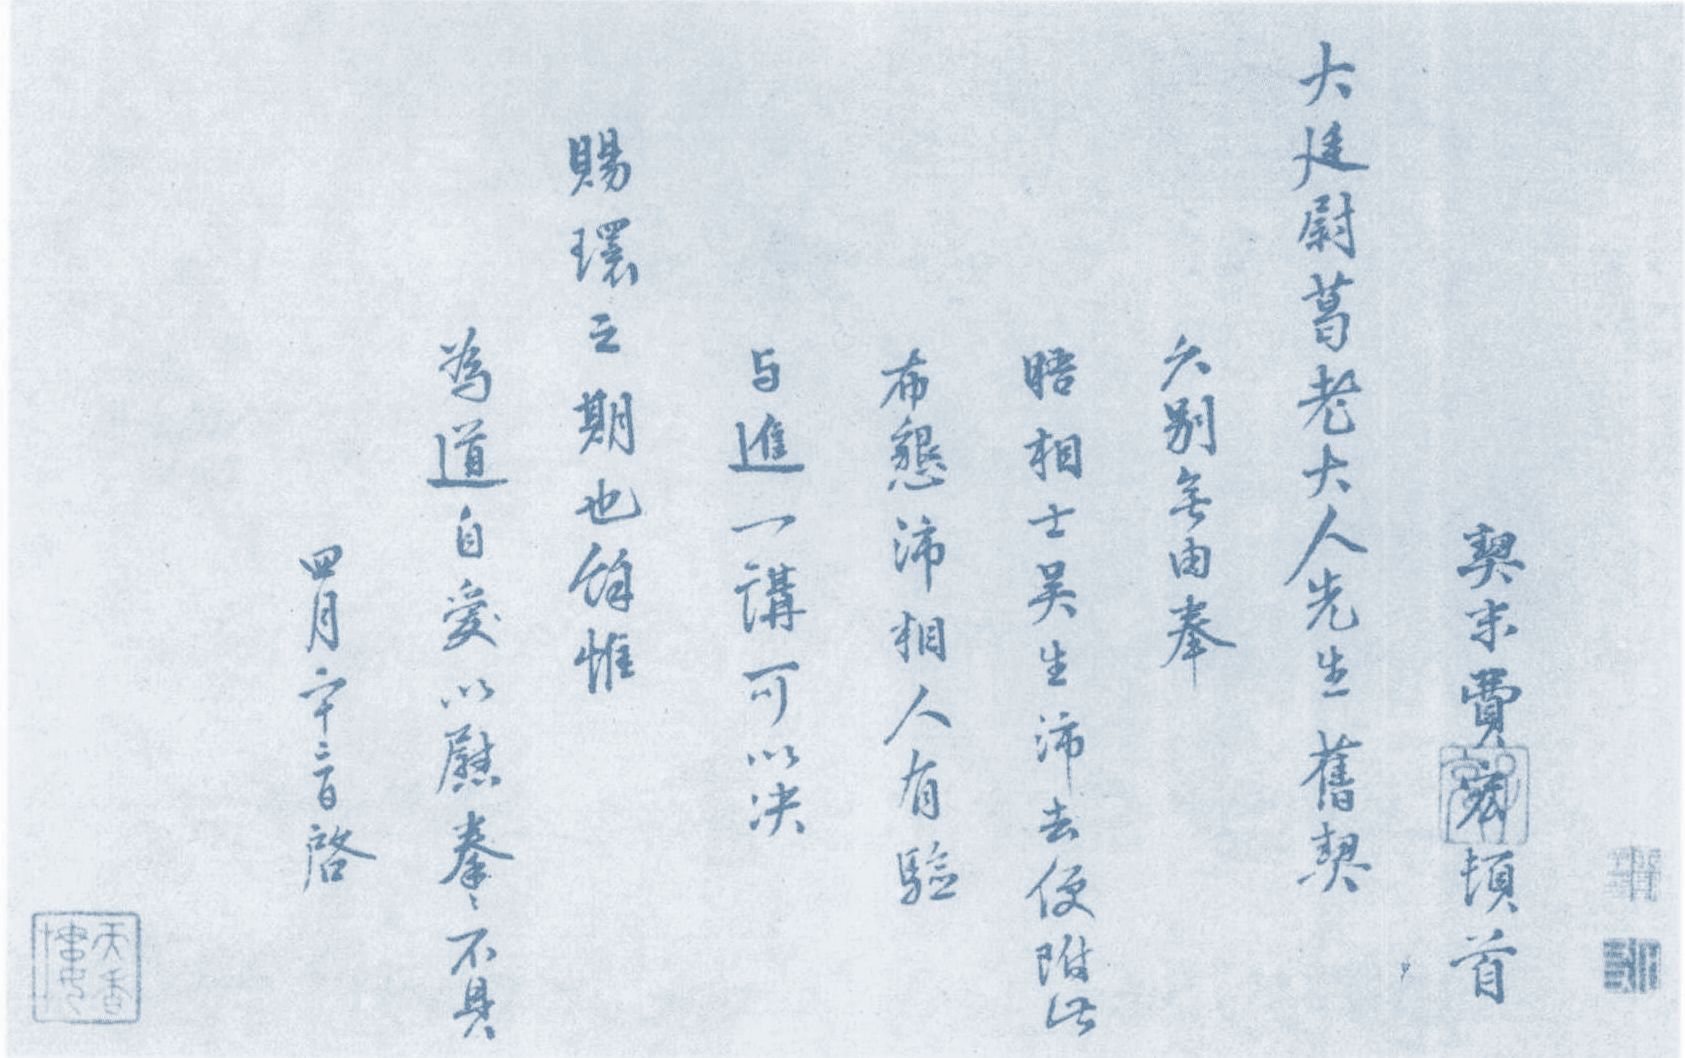 契末費宏頓首
大廷尉葛老大人先生舊契
久別無由奉
晤相士吴生沛去便附此
布懇沛相人有驗
与進一講可以决
賜環之期也餘惟
為道自愛以慰拳〻不具
四月廿二日啓
天香